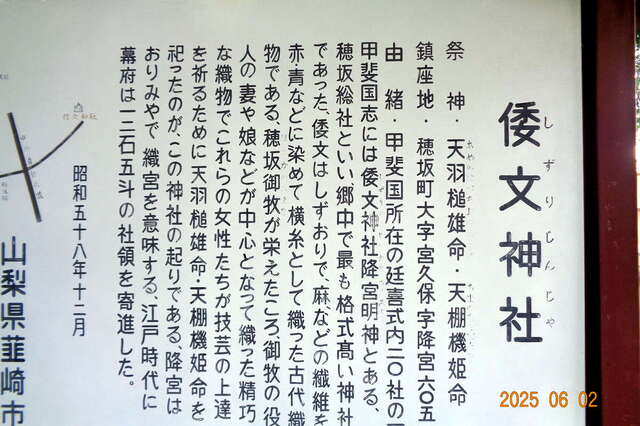 倭文神社
しずりじんじゃ
祭神・天羽槌雄命・天棚機姫命
鎮座地・穂坂町大字宮久保字降宮六〇五
由緒・甲斐国所在の廷喜式内二〇社の一
甲斐国志には倭文神社降宮明神とある、
穂坂総社といい郷中で最も格式髙い神社
であった、倭文はしずおりで、麻などの繊維を
赤・青などに染めて横糸として織った古代織
物である、穂坂御牧が栄えたころ御牧の役
人の妻や娘などが中心となって織った精巧
な織物でこれらの女性たちが技芸の上達
を祈るために天羽槌雄命・天棚機姫命を
祀ったのが、この神社の起りである、降宮は
おりみやで織宮を意味する、江戸時代に
幕府は一二石五斗の社領を寄進した。
昭和五十八年十二月
山梨県韮崎市
2025 06 02